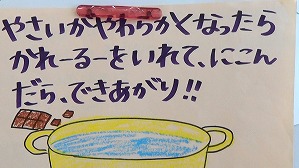 やさいがやわらかくなったら
かれーるーをいれて、にこん
だら、できあがり!!